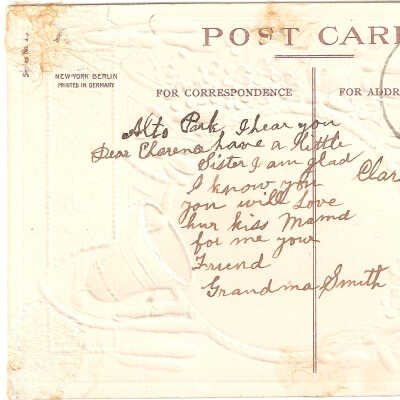 Series No. 4
POST CAR
NEW YORK BERLIN
PRINTED IN GERMANY
FOR CORRESPONDENCE
FOR ADDR
Alto Park, I hear you
Dear Clarence have a little
Sister I am glad
I know you
you will Love
hur kiss Mama
for me your
Friend
Grandma Smith
Clar